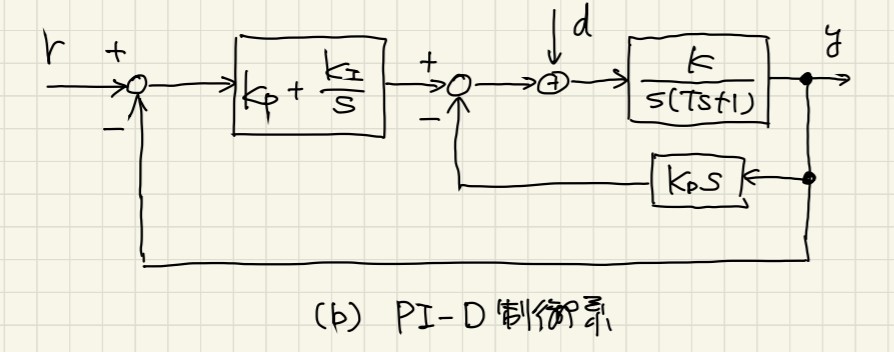 r + kp + kI/s + d K/s(Ts+1) y
− −
kDs
(b) PI-D 制御系